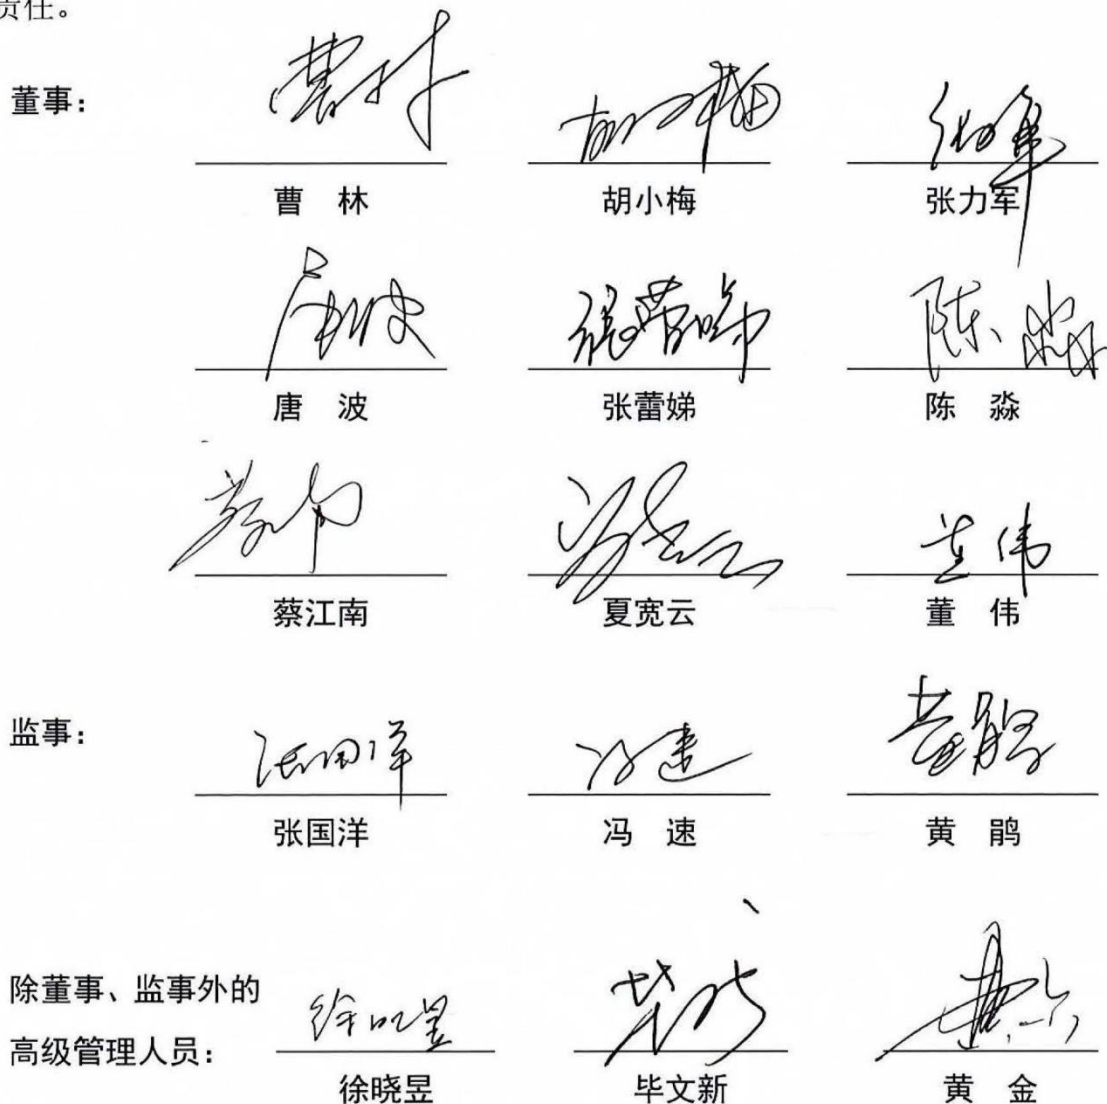 责任。
董事：
曹 林 胡小梅 张力军
唐 波 张蕾娣 陈 淼
蔡江南 夏宽云 董 伟
监事：
张国洋 冯 速 黄 鹃
除董事、监事外的
高级管理人员：
徐晓昱 毕文新 黄 金